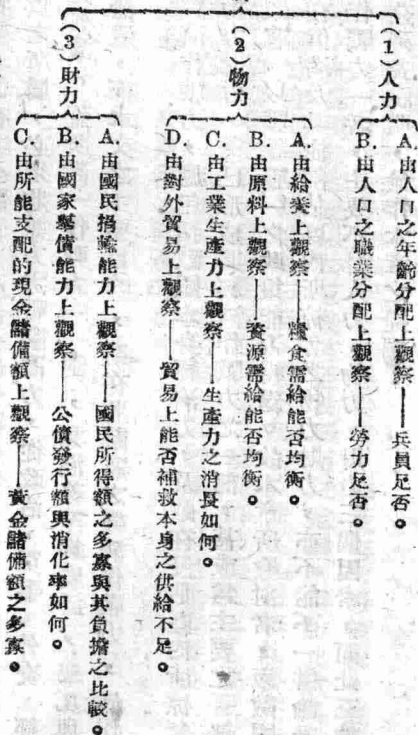 (1)人力
A.由人口之年齡分配上觀察——兵員足否。
B.由人口之職業分配上觀察——勞力足否。
(2)物力
A.由給養上觀察——糧食需給能否均衡。
B.由原料上觀察——資源需給能否均衡。
C.由工業生產力上觀察——生產力之消長如何。
D.由對外貿易上觀察——貿易上能否補救本身之供給不足。
(3)財力
A.由國民捐輸能力上觀察——國民所得額之多寡與其負擔之比較。
B.由國家舉債能力上觀察——公債發行額與消化率如何。
C.由所能支配的現金儲備額上觀察——黃金儲備額之多寡。